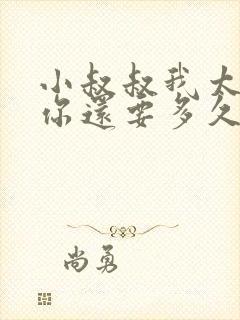 小叔叔我大
你還要多久
尚勇